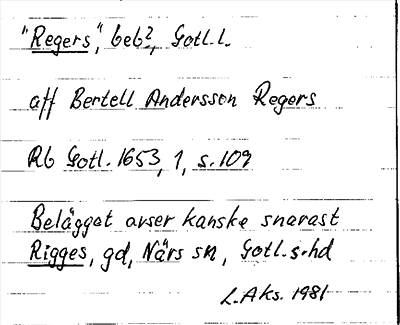 "Regers", beb?, Gotl. l.
aff Bertell Andersson Regers
Rb Gotl. 1653, 1, s. 109
Belägget avser kanske snarast
Rigges, gd, Närs sn, Gotl. s. hd
L. Aks. 1981